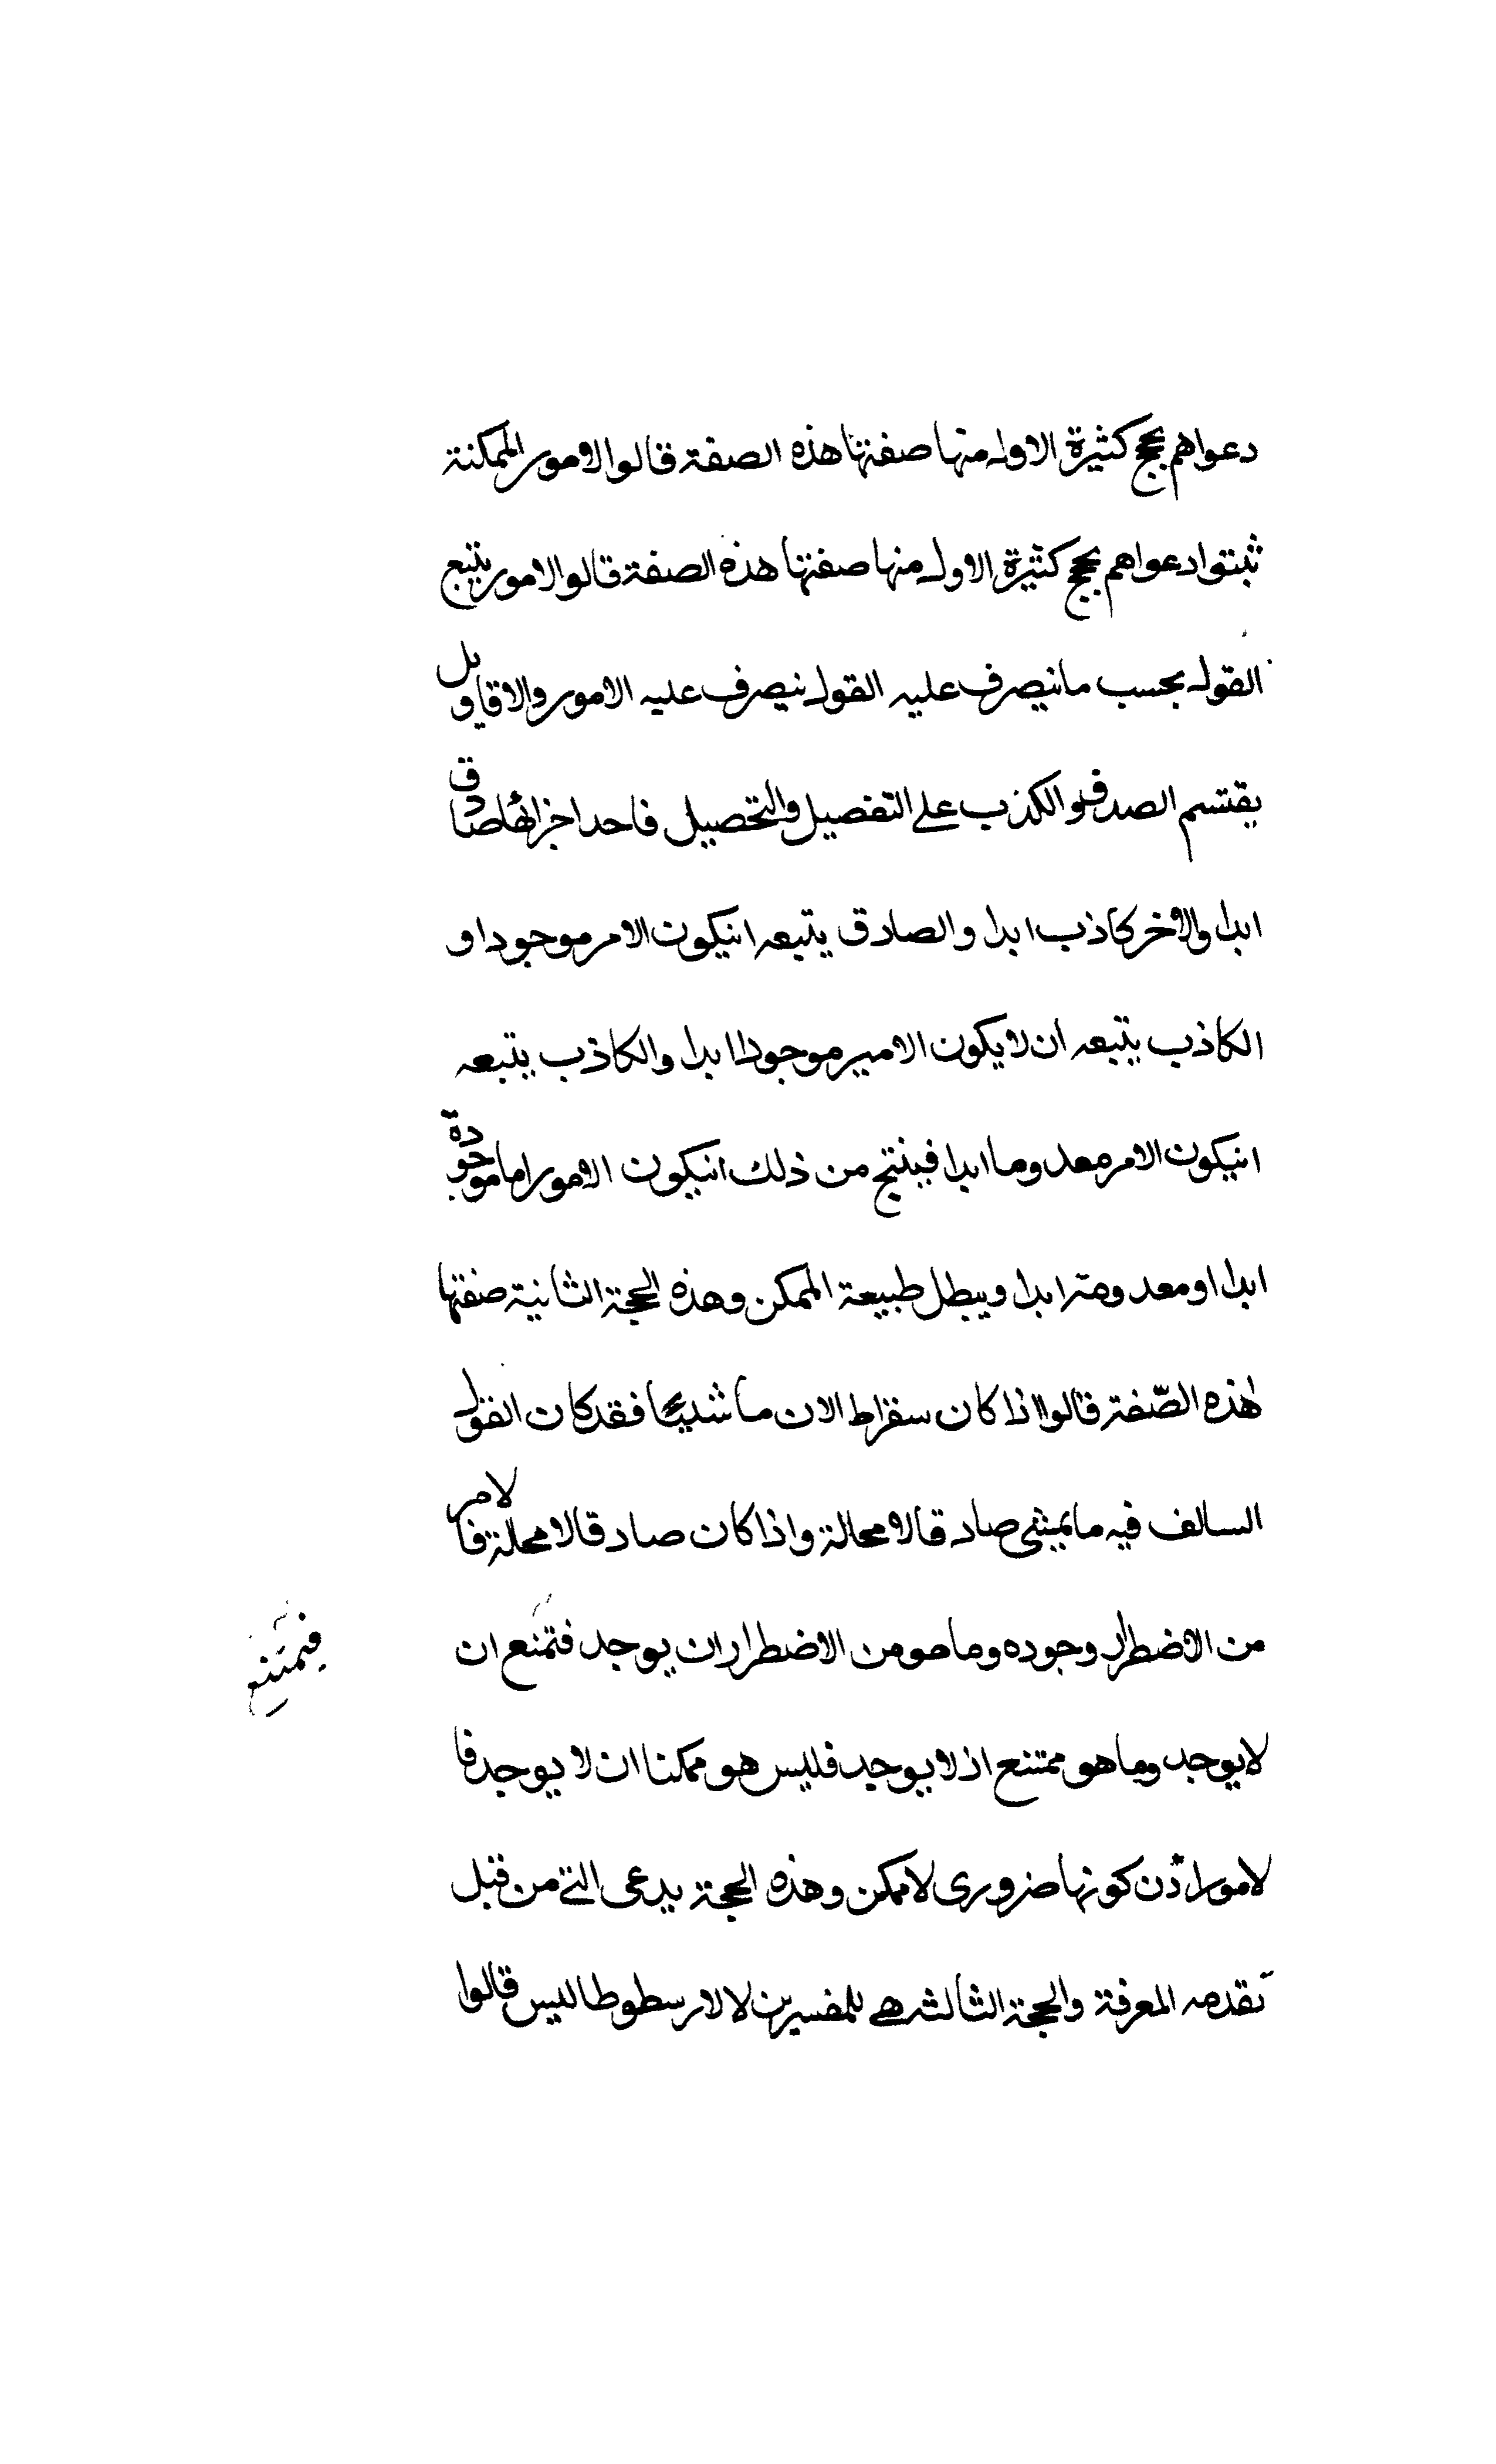 دعواهم بحجج كثيرة الاولى منها صفتها هذه الصفة قالوا الامور الممكنة
ثبتوا دعواهم بحجج كثيرة الاول منها صفتها هذه الصفة قالوا الامور يتبع
القول بحسب ما تنصرف عليه القول تنصرف عليه الامور والاقاويل
يقتسم الصدق والكذب على التفصيل والتحصيل فاحد اجزائها صادق
ابدا والاخر كاذب ابدا والصادق يتبعه انيكون الامر موجودا و
الكاذب يتبعه ان لا يكون الامير موجودا ابدا والكاذب يتبعه
انيكون الامر معدوما ابدا فينتج من ذلك انيكون الامور اما موجودة
ابدا او معدومة ابدا ويبطل طبيعة الممكن وهذه الحجة الثانية صفتها
هذه الصّفة قالوا اذا كان سقراط الان ماشيا فقد كان القول
السالف فيه ما يمشى صادقا لا محالة واذا كان صادقا لا محالة فا لامر
من الاضطرار وجوده وما هو من الاضطرار ان يوجد فتمنع ان
فيمتنع
لا يوجد وما هو ممتنع اذ لا يوجد فليس هو ممكنا ان لا يوجد فا
لامور اذن كونها ضرورى لا ممكن وهذه الحجة يدعى التى من قبل
تقدمه المعرفة والحجة الثالثه هى للمفسرين لا لارسطوطاليس قالوا